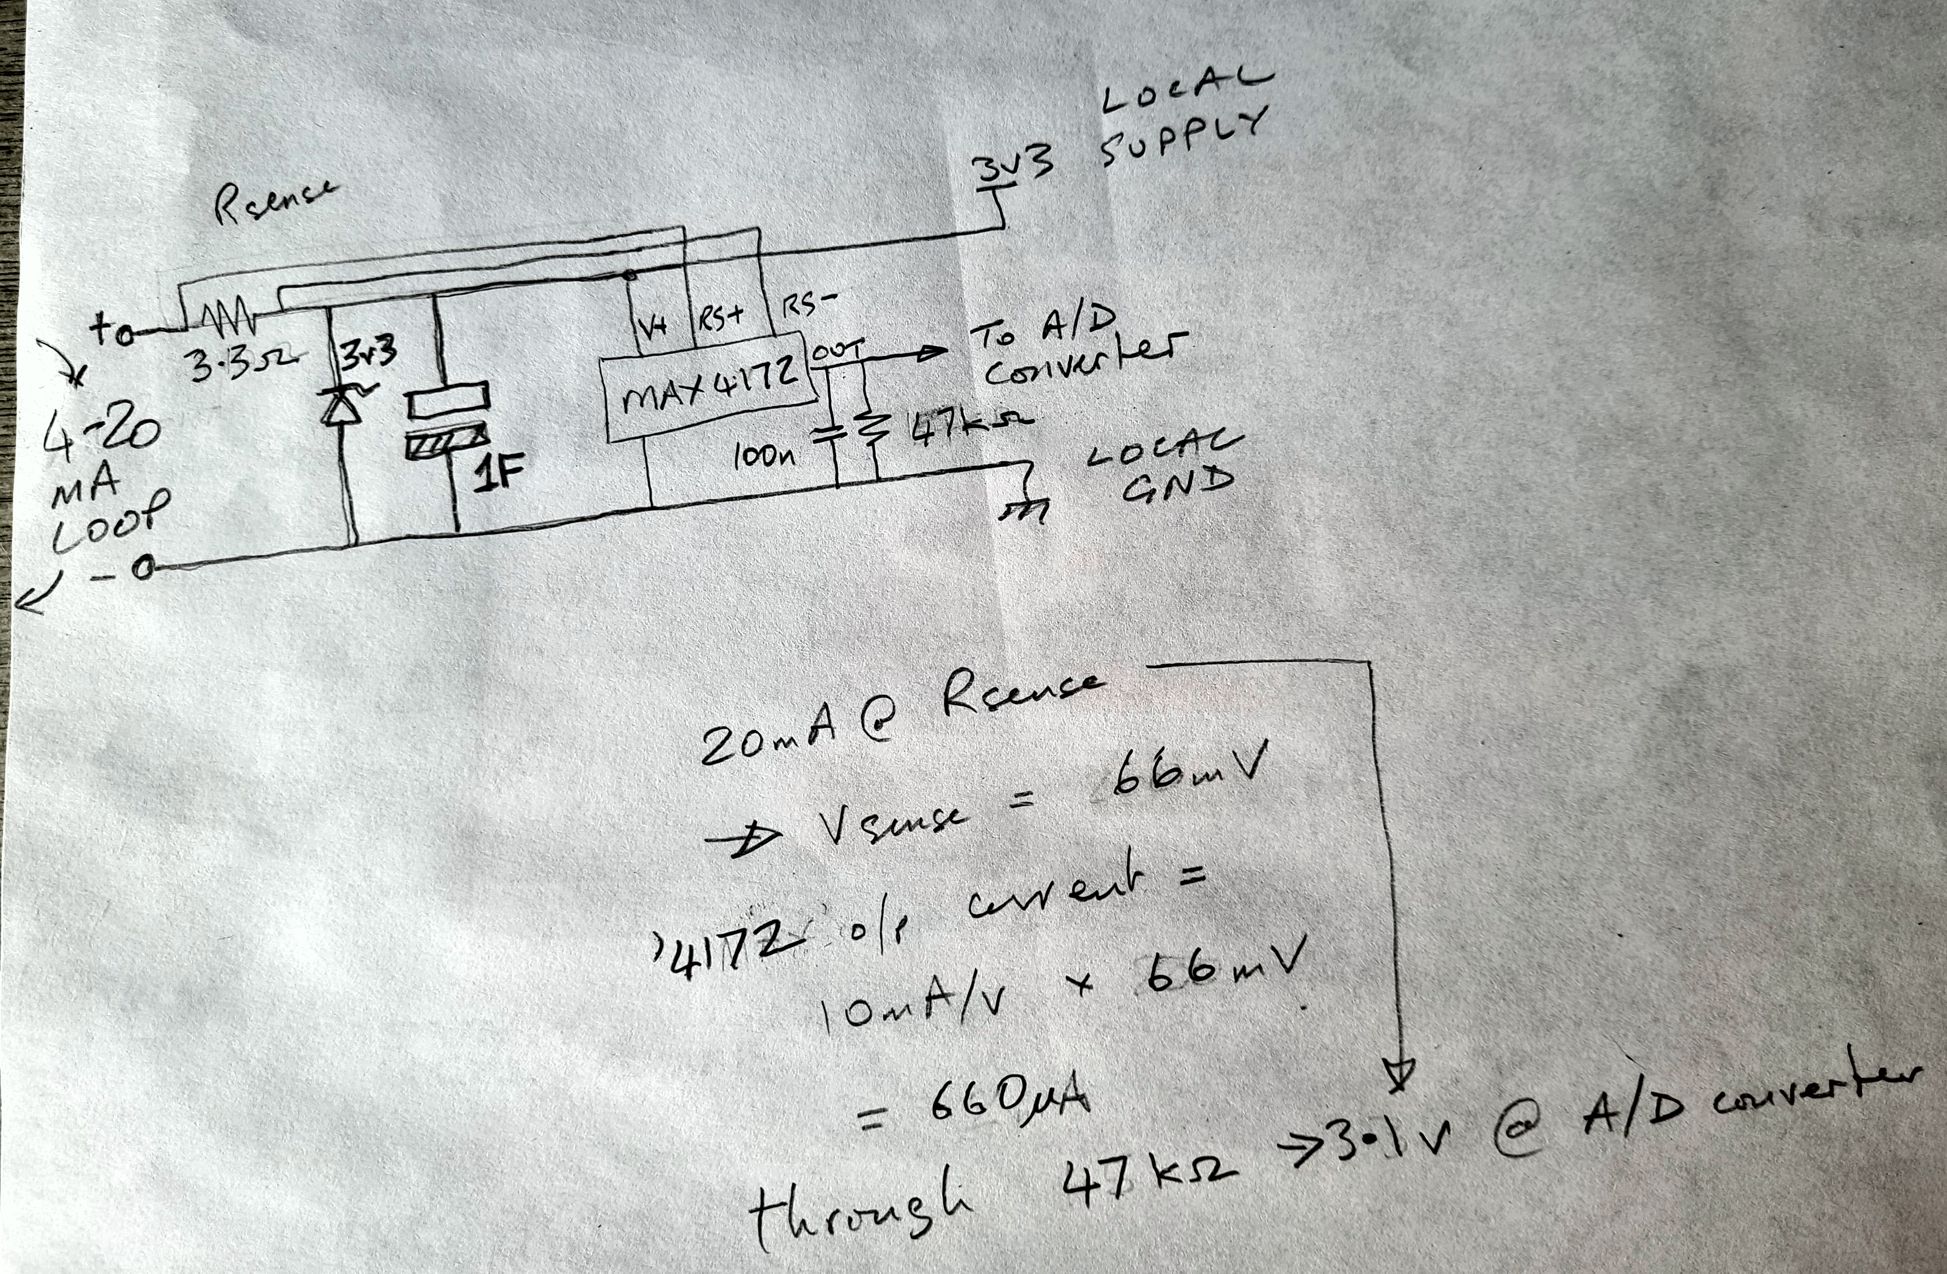 LOCAL
SUPPLY
3v3
Rsense
+
3.3Ω
3v3
V+
RS+
RS-
MAX4172
OUT
To A/D
Converter
4-20
MA
LOOP
-
1F
100n
47kΩ
LOCAL
GND
20mA @ Rsense
→ Vsense = 66mV
'4172 o/p current =
10mA/V × 66mV
= 660µA
through 47kΩ → 3.1v @ A/D converter